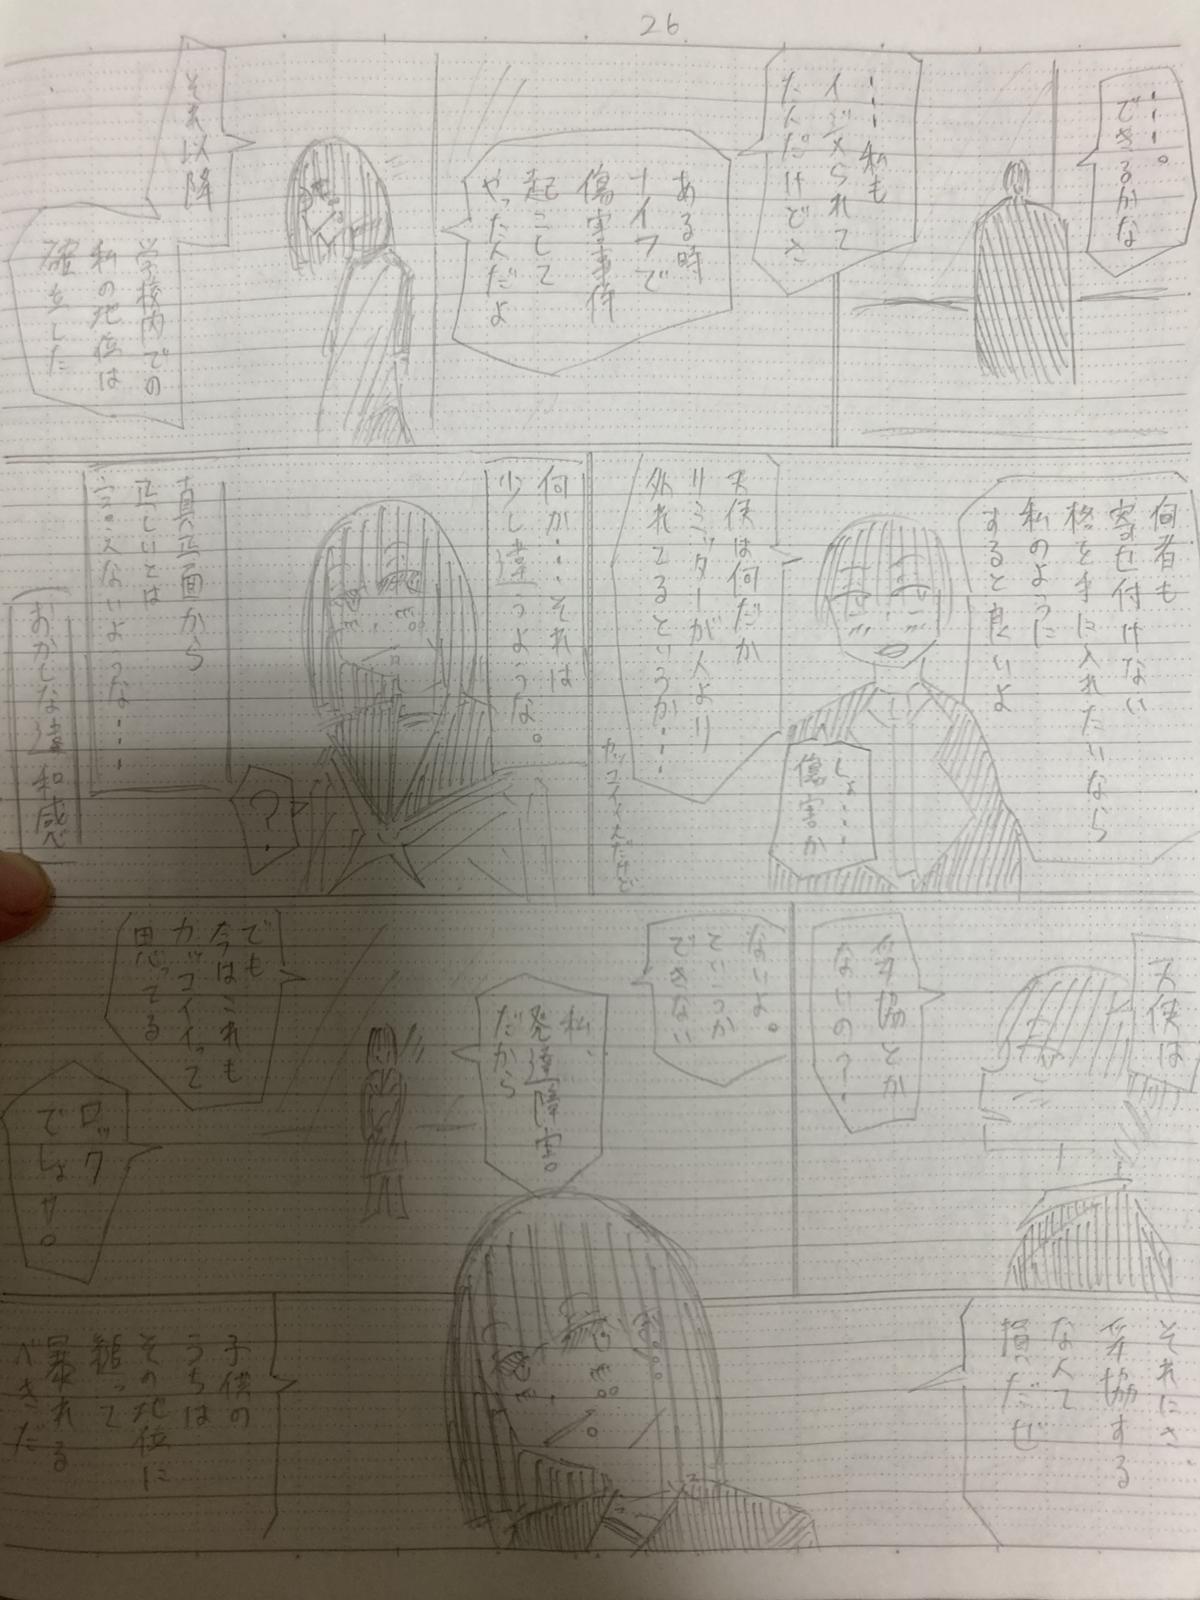 26
・・・・。
できるかな
・・・私も
イジメられて
たんだけどさ
ある時
ナイフで
傷害事件
起こして
やったんだよ
それ以降
学校内での
私の地位は
確立した
何者も
寄せ付けない
格を手に入れたいなら
私のように
すると良いよ
しょ・・・
傷害か
天使は何だか
リミッターが人より
外れてるというか・・・
カッコイイんだけど
何か・・・それは
少し違うような。
?
真正面から
正しいとは
言えないような・・・
おかしな違和感
天使は
妥協とか
ないの?
ないよ。
ていうか
できない
私、
発達障害。
だから
でも
今はこれも
カッコイイって
思ってる
ロック
でしょ?。
それにさ
妥協する
なんて
損だぜ
子供の
うちは
その地位に
縋って
暴れる
べきだ